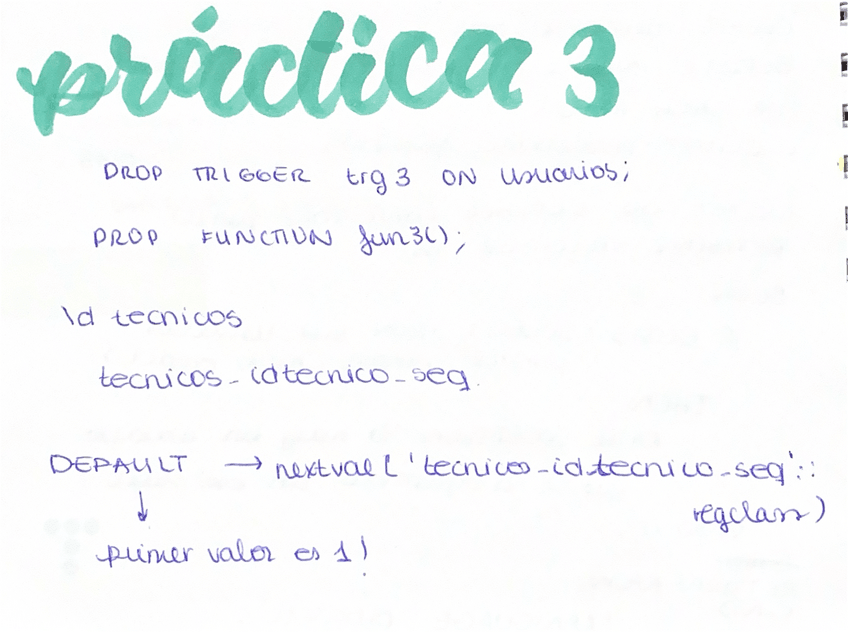 práctica 3
DROP TRIGGER trg3 ON usuarios;
DROP FUNCTION fun3();
\d tecnicos
tecnicos_idtecnico_seq.
DEFAULT → nextval('tecnicos_id_tecnico_seq'::
regclass)
↓
primer valor es 1!